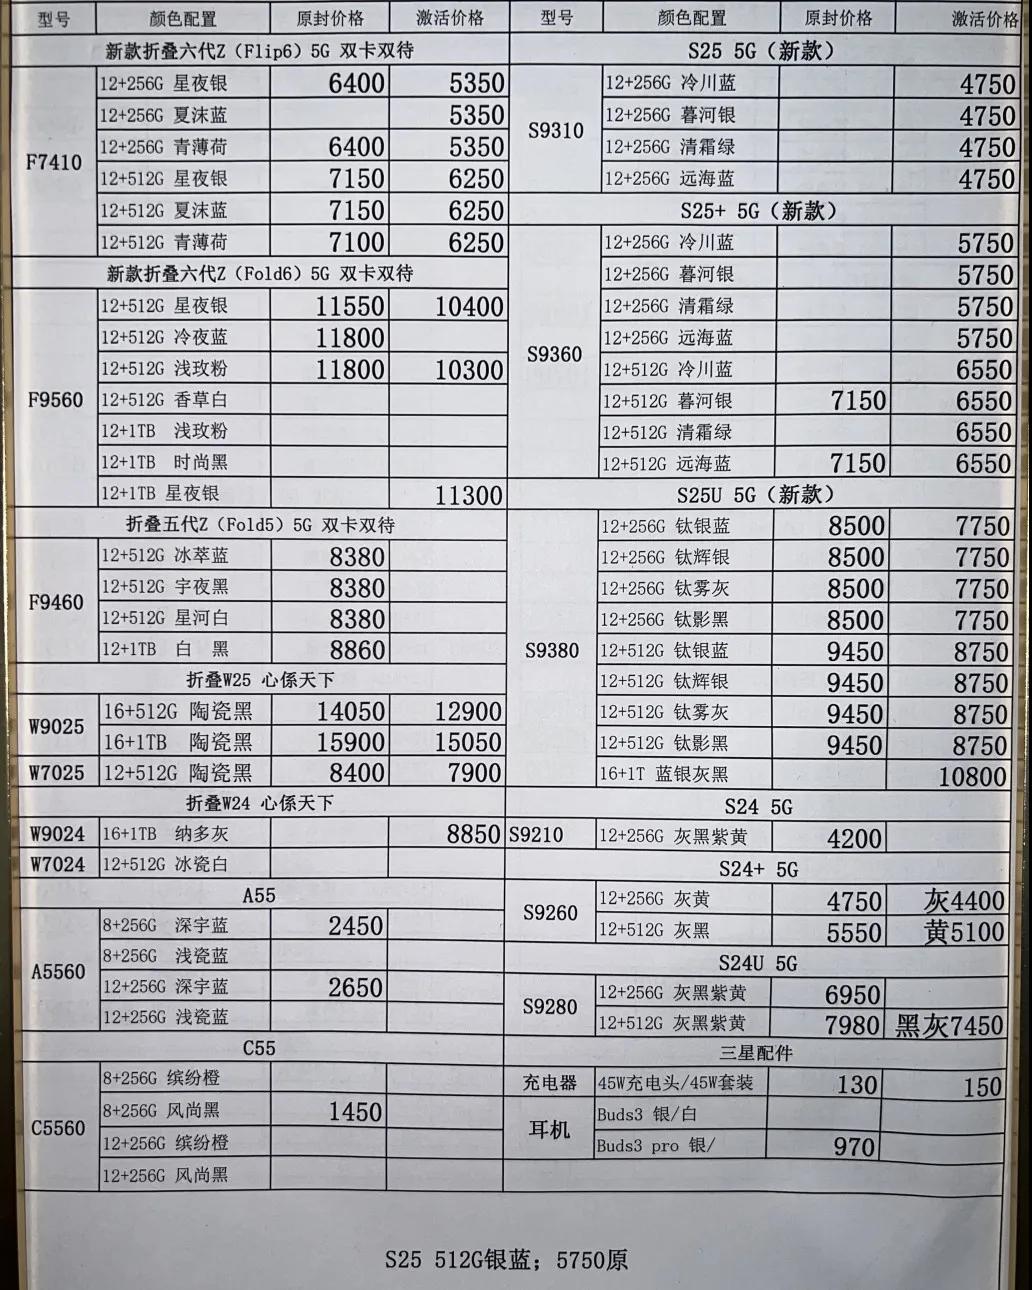 型号 颜色配置 原封价格 激活价格
新款折叠六代Z（Flip6）5G 双卡双待
F7410
12+256G 星夜银 6400 5350
12+256G 夏沫蓝 5350
12+256G 青薄荷 6400 5350
12+512G 星夜银 7150 6250
12+512G 夏沫蓝 7150 6250
12+512G 青薄荷 7100 6250
新款折叠六代Z（Fold6）5G 双卡双待
F9560
12+512G 星夜银 11550 10400
12+512G 冷夜蓝 11800
12+512G 浅玫粉 11800 10300
12+512G 香草白
12+1TB 浅玫粉
12+1TB 时尚黑
12+1TB 星夜银 11300
折叠五代Z（Fold5）5G 双卡双待
F9460
12+512G 冰萃蓝 8380
12+512G 宇夜黑 8380
12+512G 星河白 8380
12+1TB 白 黑 8860
折叠W25 心係天下
W9025
16+512G 陶瓷黑 14050 12900
16+1TB 陶瓷黑 15900 15050
W7025 12+512G 陶瓷黑 8400 7900
折叠W24 心係天下
W9024 16+1TB 纳多灰 8850
W7024 12+512G 冰瓷白
A55
A5560
8+256G 深宇蓝 2450
8+256G 浅瓷蓝
12+256G 深宇蓝 2650
12+256G 浅瓷蓝
C55
C5560
8+256G 缤纷橙
8+256G 风尚黑 1450
12+256G 缤纷橙
12+256G 风尚黑
型号 颜色配置 原封价格 激活价格
S25 5G（新款）
S9310
12+256G 冷川蓝 4750
12+256G 暮河银 4750
12+256G 清霜绿 4750
12+256G 远海蓝 4750
S25+ 5G（新款）
S9360
12+256G 冷川蓝 5750
12+256G 暮河银 5750
12+256G 清霜绿 5750
12+256G 远海蓝 5750
12+512G 冷川蓝 6550
12+512G 暮河银 7150 6550
12+512G 清霜绿 6550
12+512G 远海蓝 7150 6550
S25U 5G（新款）
S9380
12+256G 钛银蓝 8500 7750
12+256G 钛辉银 8500 7750
12+256G 钛雾灰 8500 7750
12+256G 钛影黑 8500 7750
12+512G 钛银蓝 9450 8750
12+512G 钛辉银 9450 8750
12+512G 钛雾灰 9450 8750
12+512G 钛影黑 9450 8750
16+1T 蓝银灰黑 10800
S24 5G
S9210 12+256G 灰黑紫黄 4200
S24+ 5G
S9260
12+256G 灰黄 4750 灰4400
12+512G 灰黑 5550 黄5100
S24U 5G
S9280
12+256G 灰黑紫黄 6950
12+512G 灰黑紫黄 7980 黑灰7450
三星配件
充电器 45W充电头/45W套装 130 150
耳机
Buds3 银/白
Buds3 pro 银/ 970
S25 512G银蓝；5750原